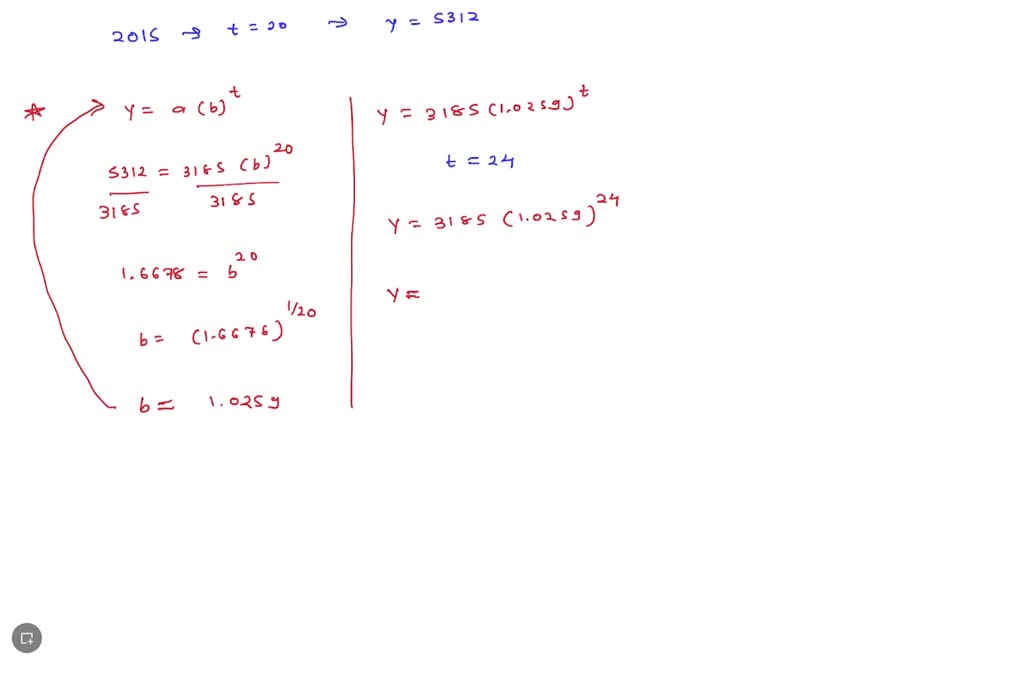 2015 → t = 20 → y = 5312
* y = a (b)^t
5312 = 3185 (b)^20
3185 3185
1.6678 = b^20
b = (1.6678)^1/20
b = 1.0259
y = 3185 (1.0259)^t
t = 24
y = 3185 (1.0259)^24
y =